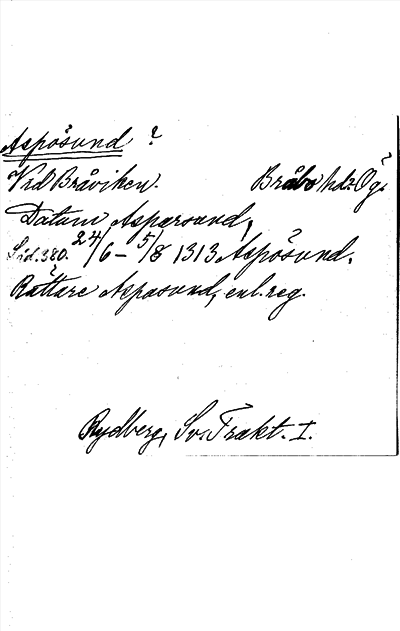 Aspösund ?
Vid Bråviken. Bråbo hdr Ög.
Datum Aspersund,
Sid. 380. 24/6 – 5/8 1313 Aspösund.
Rättare Aspasund, enl. reg.
Rydberg, Sv. Trakt. I.